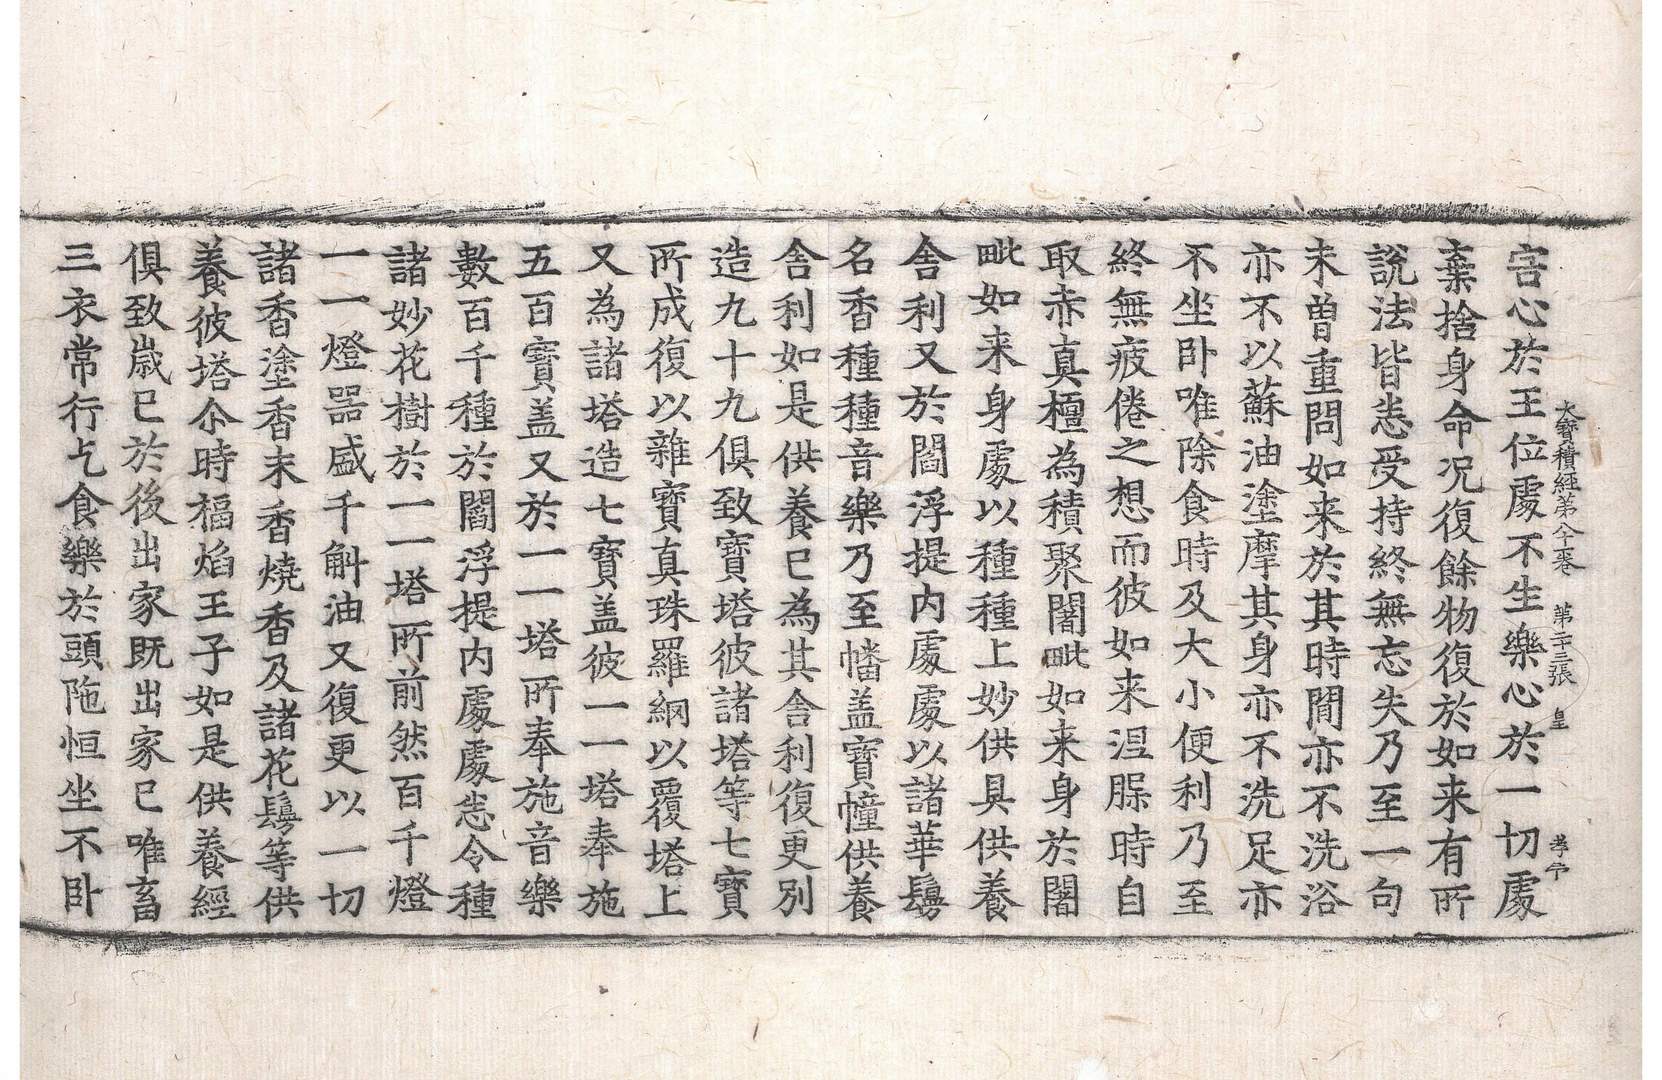 大寶積經第八十卷 第二十三張 皇 孝守
害心於王位處不生樂心於一切處
棄捨身命况復餘物復於如来有所
說法皆悉受持終無忘失乃至一句
未曾重問如来於其時間亦不洗浴
亦不以蘇油塗摩其身亦不洗足亦
不坐卧唯除食時及大小便利乃至
終無疲倦之想而彼如来涅牓時自
取赤真檀為積聚闍毗如来身於闍
毗如来身處以種種上妙供具供養
舍利又於閻浮提内處處以諸華鬘
名香種種音樂乃至幡盖寶幢供養
舍利如是供養已為其舍利復更別
造九十九俱致寶塔彼諸塔等七寶
所成復以雜寶真珠羅網以覆塔上
又為諸塔造七寶盖彼一一塔奉施
五百寶盖又於一一塔所奉施音樂
數百千種於閻浮提内處處悉令種
諸妙花樹於一一塔所前然百千燈
一一燈器盛千斛油又復更以一切
諸香塗香末香燒香及諸花鬘等供
養彼塔尒時福焰王子如是供養經
俱致歲已於後出家既出家已唯畜
三衣常行乞食樂於頭陁恒坐不卧